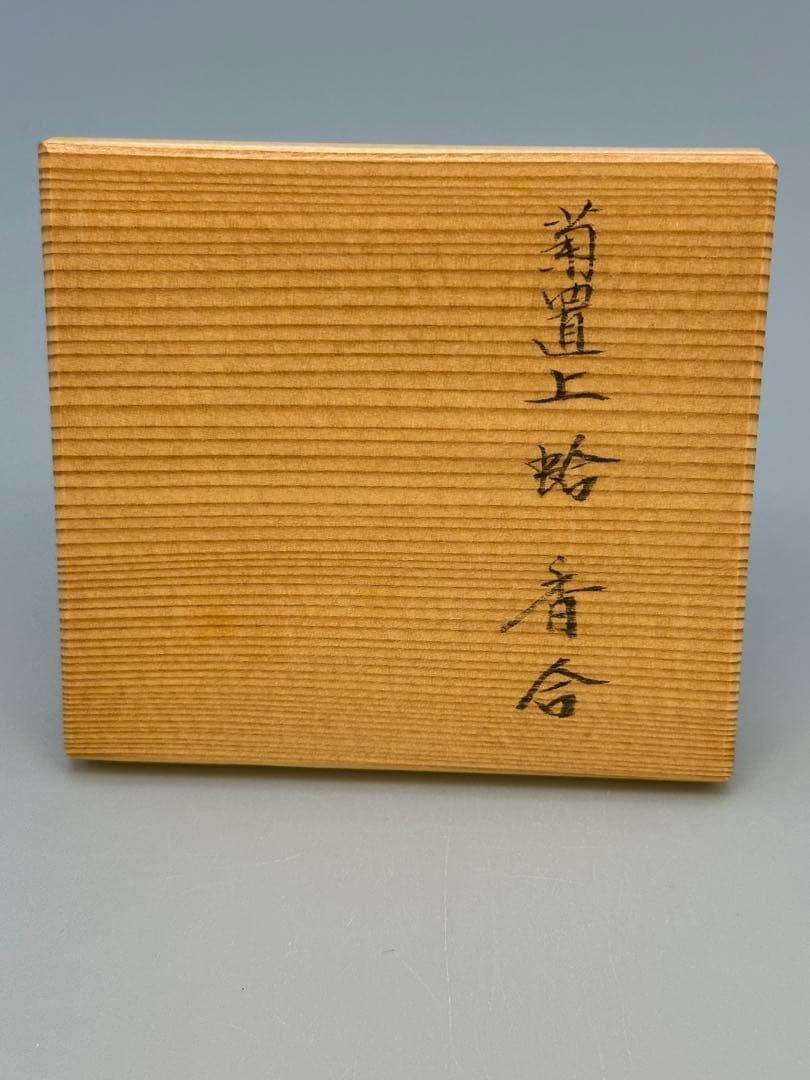 菊置上 蛤 香合